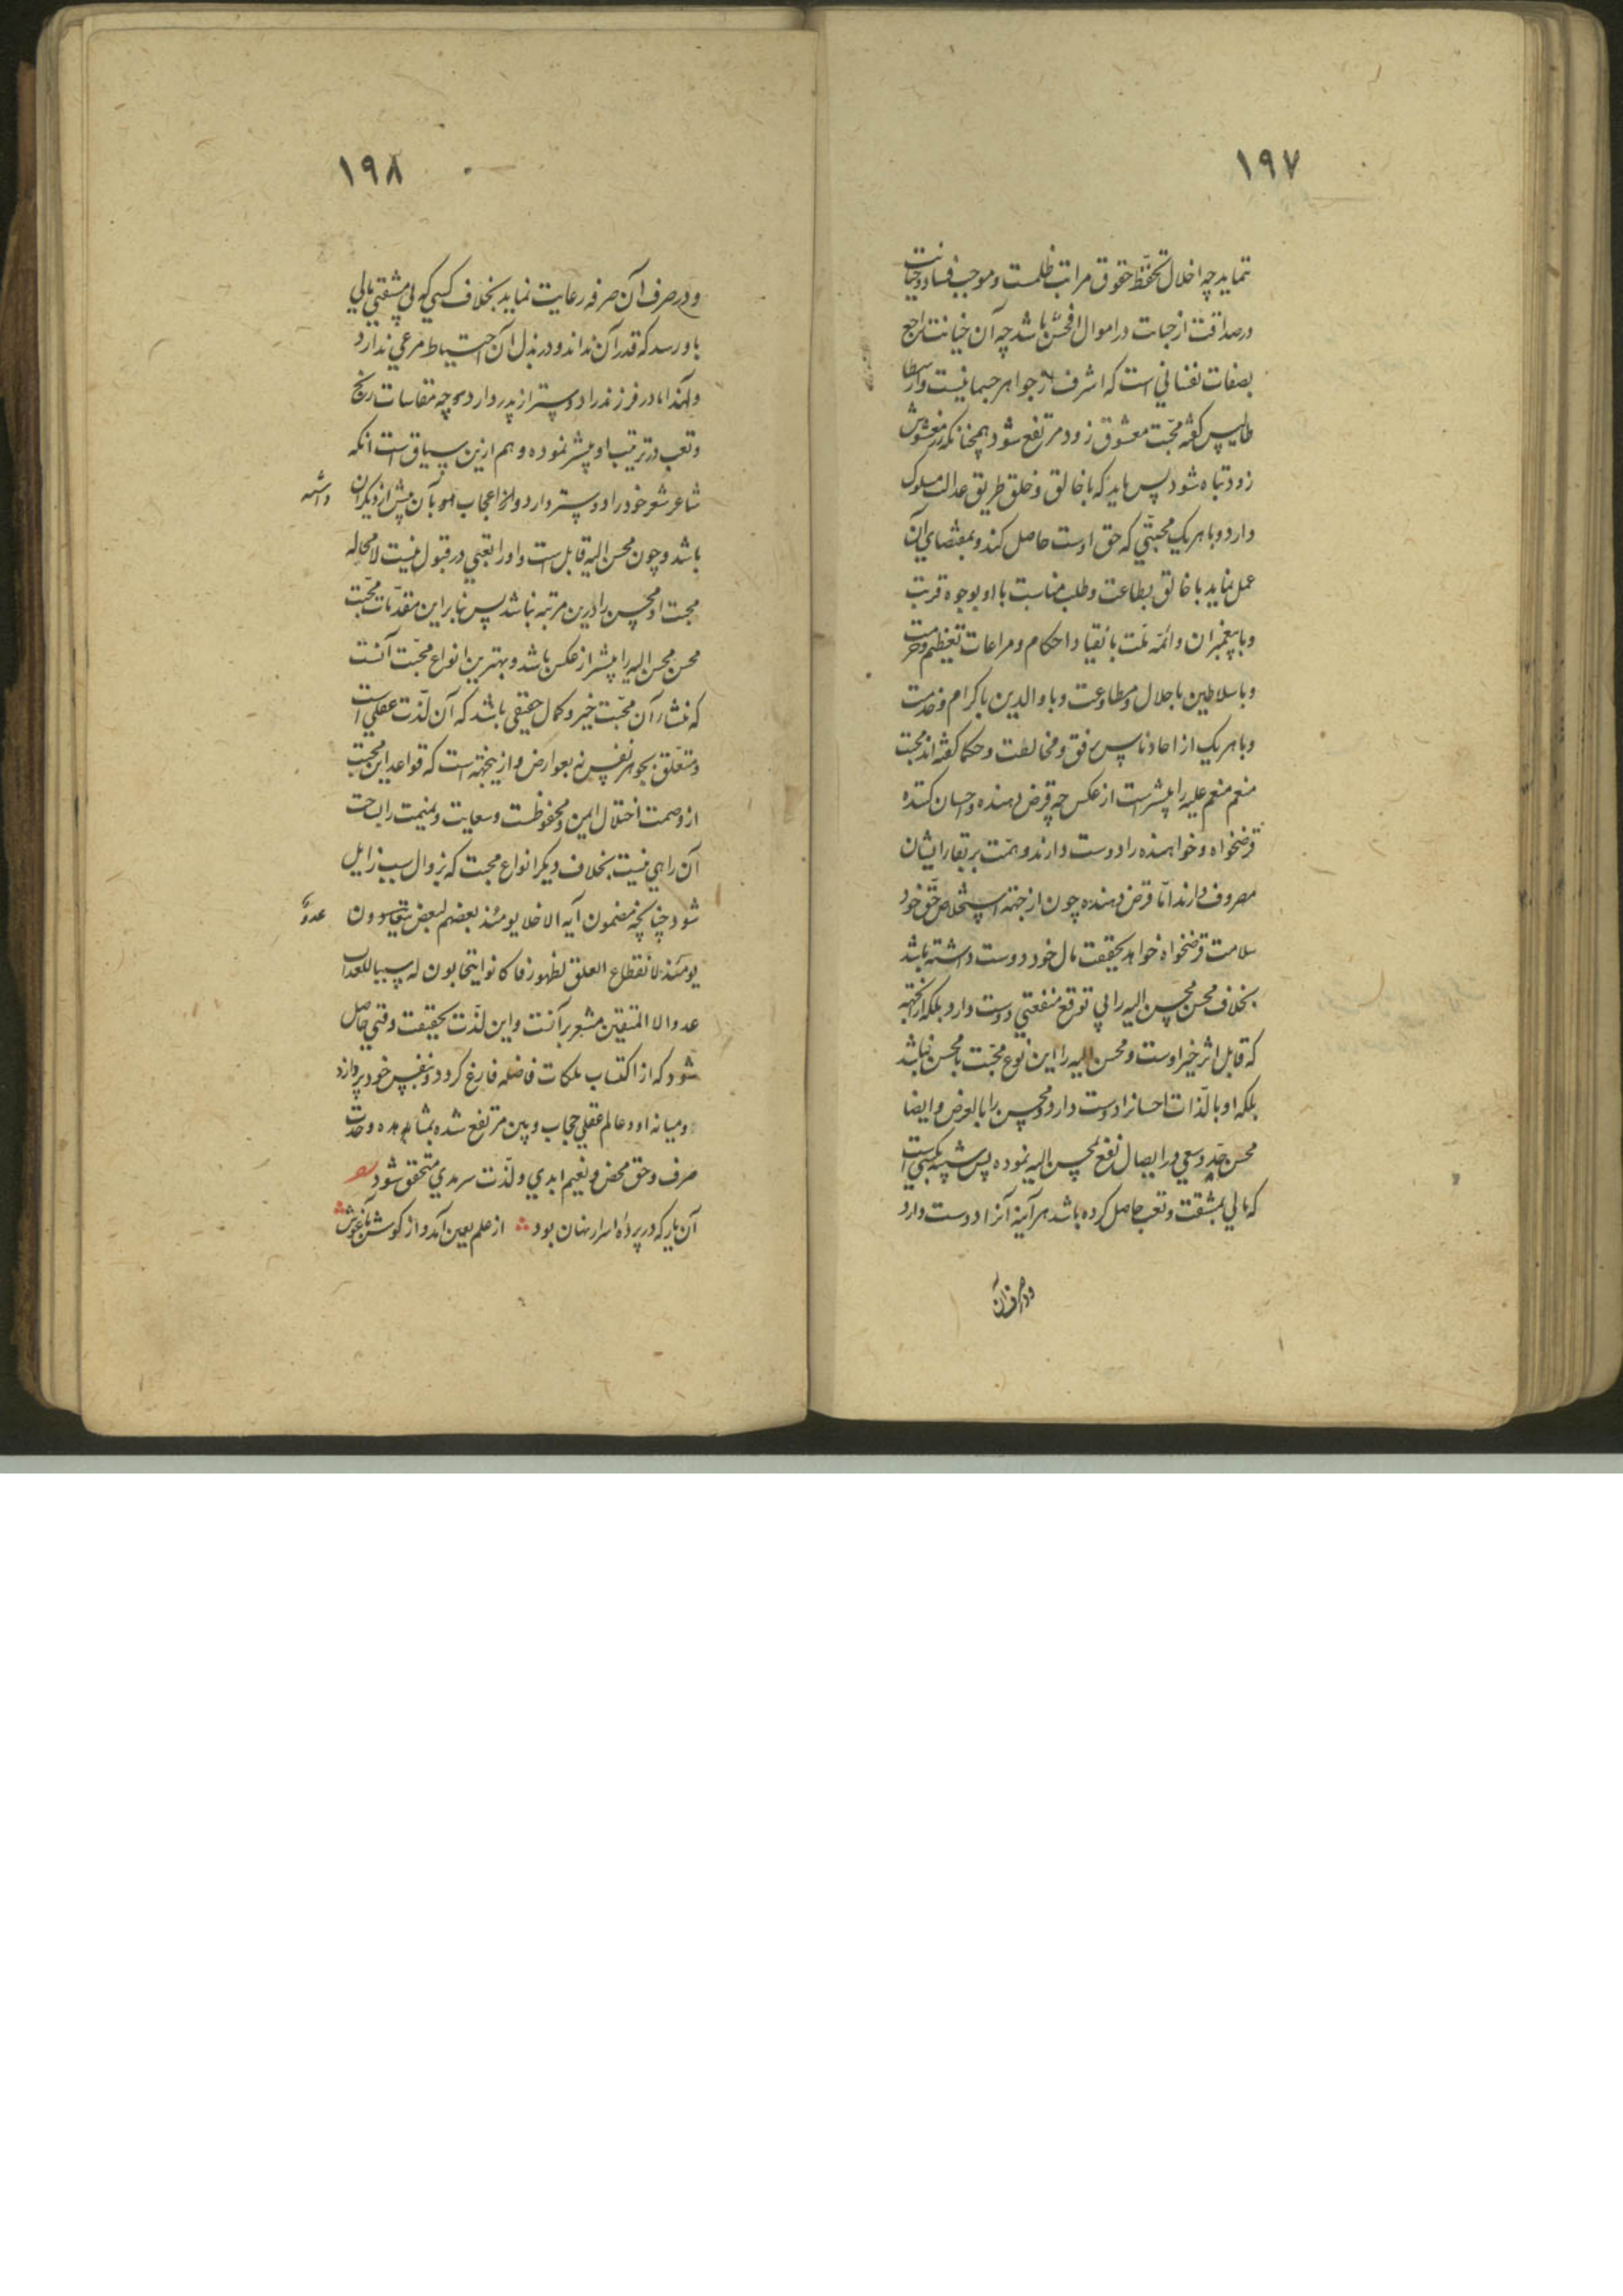 ١٩٧
نماید چه اخلال تحفظ حقوق مراتب ظلمست و موجب فساد و خیانت
در صداقت از خیانت در اموال افحش باشد چه آن خیانت راجع
بصفات نفسانی است که اشرف از جواهر جسمانیست وارسطا
طالیس گفته محبّت معشوق زود مرتفع شود همچنانکه زر مغشوش
زود تباه شود پس باید که با خالق و خلق طریق عدالت مسلوک
دارد و با هر یک محبّتی که حق اوست حاصل کند و بمقتضای آن
عمل نماید با خالق بطاعت و طلب مناسبت با او بوجوه قربت
و با پیغمبران و ائمّه ملّت بانقیاد احکام و مراعات تعظیم و حرمت
و با سلاطین باجلال و مطاوعت و با والدین باکرام و خدمت
و با هر یک از احاد ناس برفق و مخالطت و حکما گفته اند محبت
منعم منعم علیه را بیشتر است از عکس چه قرض دهنده و احسان کننده
قرضخواه و خواهنده را دوست دارند و همّت بر بقاء ایشان
مصروف دارند امّا قرض دهنده چون از جهة استخلاص حقّ خود
سلامت قرضخواه خواهد بحقیقت مال خود دوست داشته باشد
بخلاف محسن که محسن الیه را بی توقع منفعتی دوست دارد بلکه ازینجهة
که قابل اثر خیر اوست و محسن الیه را این نوع محبّت با محسن نباشد
بلکه او بالذّات احسانرا دوست دارد و محسن را بالعرض و ایضا
محسن جدّ و سعی در ایصال نفع بمحسن الیه نموده پس شبیه بکسی است
که مالی بمشقت و تعب حاصل کرده باشد هر آینه آنرا دوست دارد
و در صرف آن
١٩٨
و در صرف آن صرفه رعایت نماید بخلاف کسی که بی مشقتی مالی
باو رسد که قدر آن نداند و در بذل آن احتیاط مرعی ندارد
و لهذا مادر فرزند را دوستر از پدر دارد چه مقاسات رنج
و تعب در تربیت او بیشتر نموده و هم ازین سیاق است انکه
شاعر شعر خود را دوستر دارد و اعجاب او بآن بیش از دیگران
باشد و چون محسن الیه قابل است و او را تعبی در قبول نیست لا محاله
محبت او محسن را درین مرتبه نباشد پس بنابر این مقدّمات محبّت
محسن محسن الیه را بیشتر از عکس باشد و بهترین انواع محبّت آنست
که منشاء آن محبّت خیر و کمال حقیقی باشد که آن لذّت عقلی است
و متعلّق بجوهر نفس نه بعوارض و ازینجهة است که قواعد این محبت
از وصمت اختلال ایمن و محفوظست و سعایت و نمیمت را بساحت
آن راهی نیست بخلاف دیکر انواع محبت که بزوال سبب زایل
شود چنانچه مضمون آیه الاخلاء یومئذ بعضهم لبعض عدوّ
یومئذ لانقطاع العلق لظهور فما کانوا یتحابون له سببا للعذاب
عدو الا المتقین مشعر برآنست و این لذّت بحقیقت وقتی حاصل
شود که از اکتساب ملکات فاضله فارغ کردد و بنفس خود پردازد
و میانه او و عالم عقلی حجاب و بین مرتفع شده بمشاهده وحدت
صرف و حق محض و نعیم ابدی و لذّت سرمدی متحقق شود
آن یار که در پردهٔ اسرار نهان بود از علم بعین آمد و از گوش بآغوش